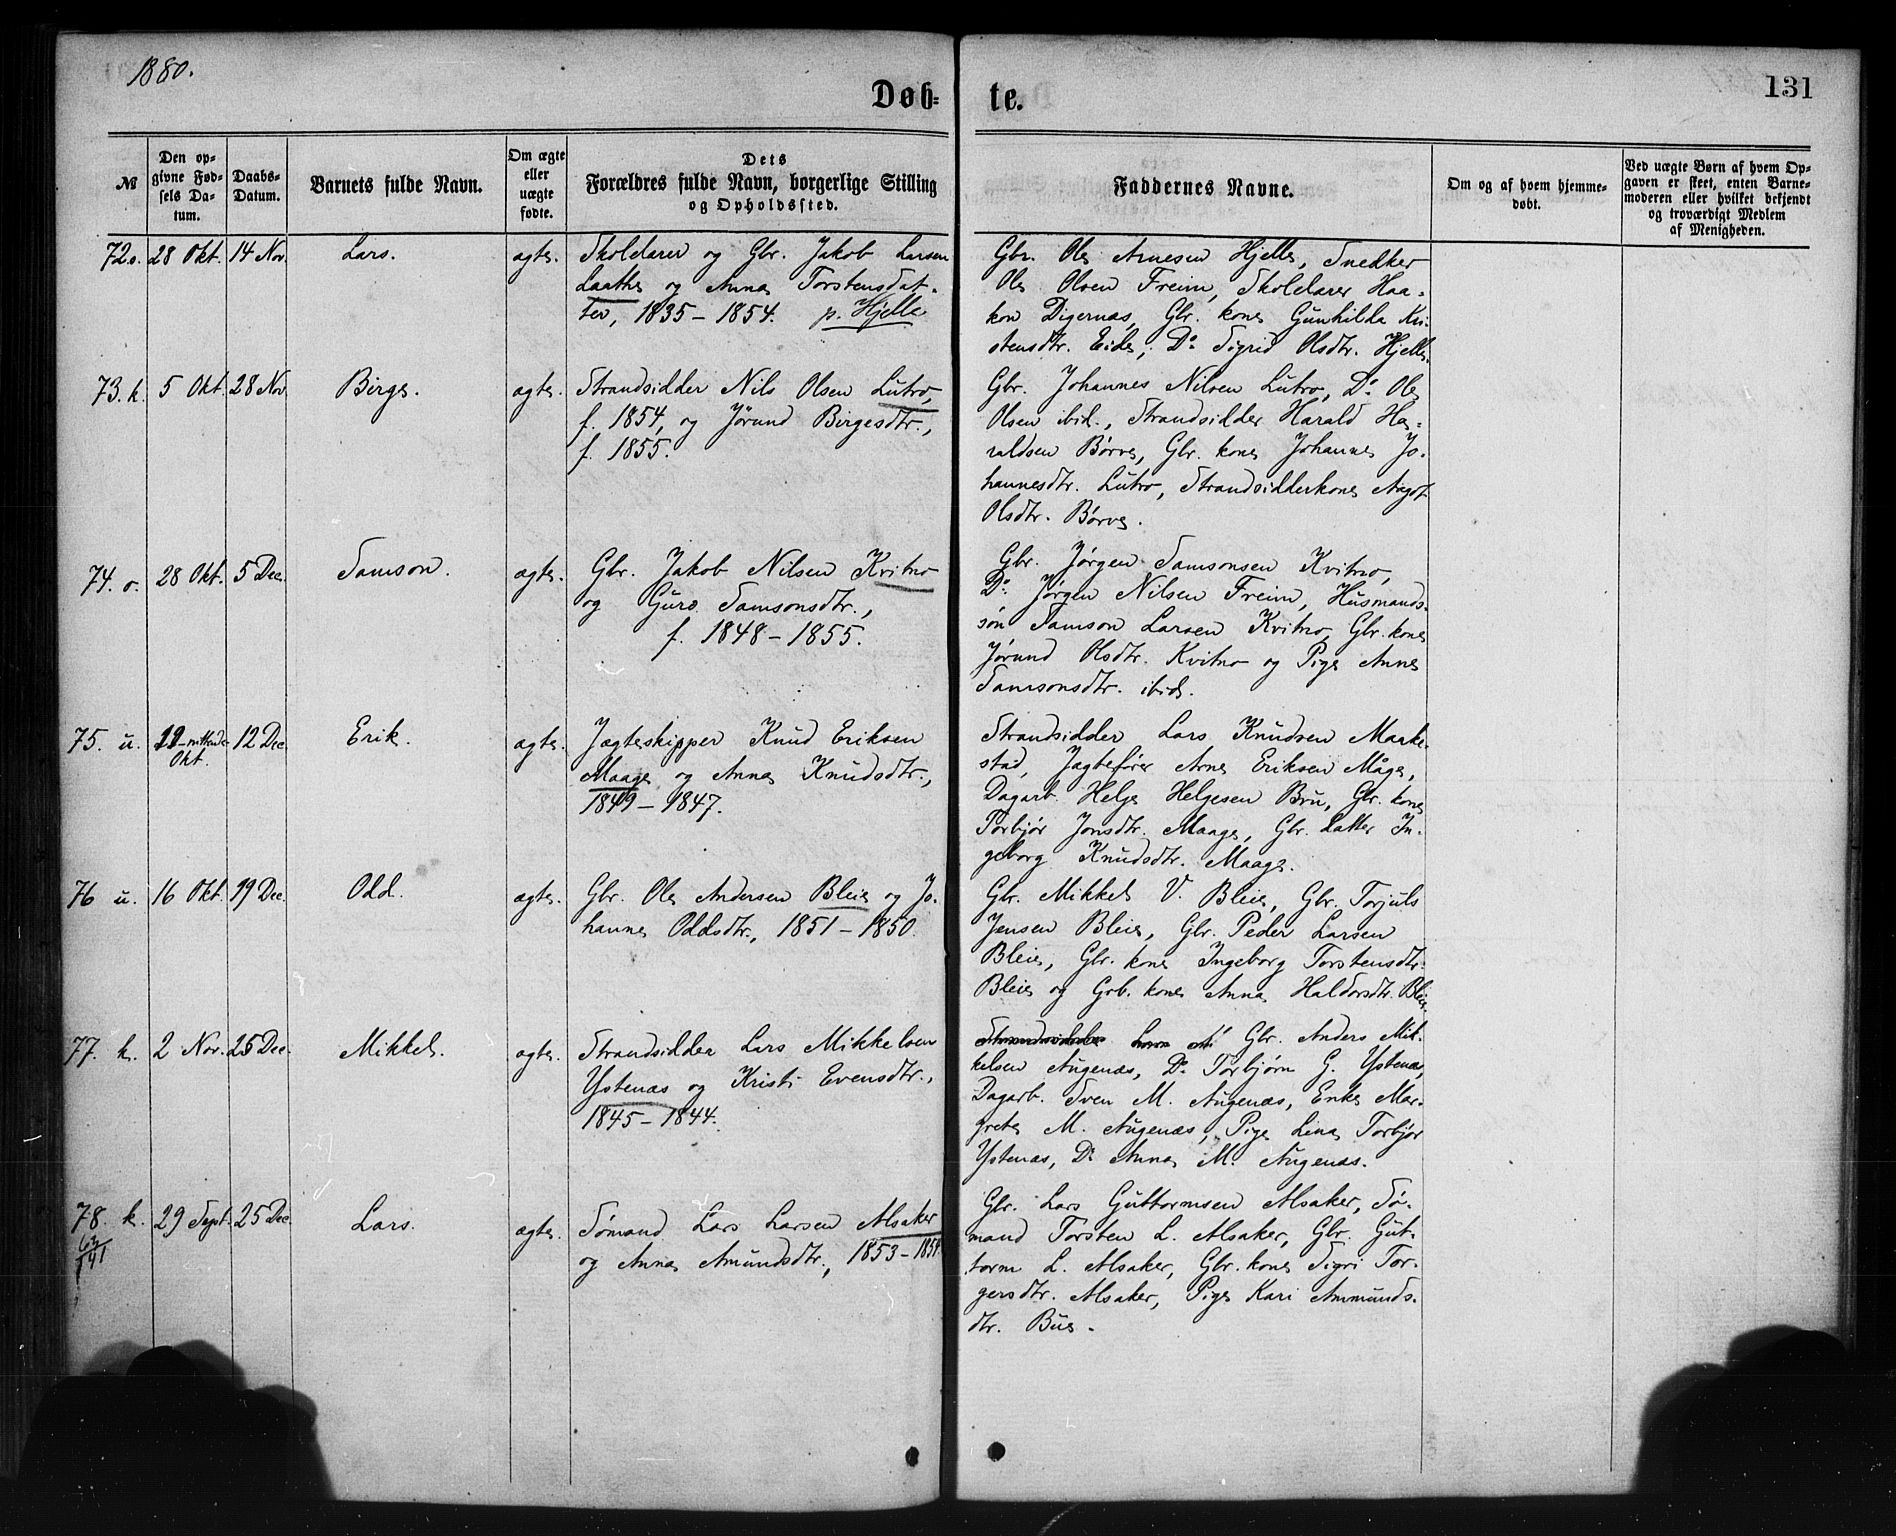 1880.
Døb=
te.
131
№
Den op-
givne Fød-
sels Da-
tum.
Daabs-
Datum.
Barnets fulde Navn.
Om ægte
eller
uægte
fødte.
Dets
Forældres fulde Navn, borgerlige Stilling
og Opholdssted.
Faddernes Navne.
Om og af hvem hjemme-
døbt.
Ved uægte Børn af hvem Op-
gaven er skeet, enten Barne-
moderen eller hvilket bekjendt
og troværdigt Medlem
af Menigheden.
72. o. 28 Okt. 14 Nov. Lars. ægte.
Skolelærer og Gbr. Jakob Larsen
Laathe og Anna Torstensdat-
ter, 1835 - 1854. p. Hjelle
Gbr. Ole Arnesen Hjelle, Snedker
Ole Olsen Freim, Skolelærer Haa-
kon Digernæs, Gbr. kone Gunhilda Kri-
stensdtr. Eide, Do Sigrid Olsdtr. Hjelle.
73. k. 5 Okt. 28 Nov. Birge. ægte.
Strandsidder Nils Olsen Lutro,
f. 1854, og Jørund Birgesdtr.,
f. 1855.
Gbr. Johannes Nilsen Lutro, Do Ole
Olsen ibid., Strandsidder Harald Ha-
raldsen Børve, Gbr. kone Johanne Jo-
hannesdtr. Lutro, Strandsidderkone Aagot
Olsdtr. Børve.
74. o. 28 Okt. 5 Dec. Samson. ægte.
Gbr. Jakob Nilsen Kvitno
og Guro Samsonsdtr.,
f. 1848 - 1855.
Gbr. Jørgen Samsonsen Kvitno,
Do Jørgen Nilsen Freim, Husmands-
søn Samson Larsen Kvitno, Gbr. kone
Jørund Olsdtr. Kvitno og Pige Anna
Samsonsdtr. ibid.
75. u. 19 - nittende Okt. 12 Dec. Erik. ægte.
Jægteskipper Knud Eriksen
Maage og Anna Knudsdtr.,
1849 - 1847.
Strandsidder Lars Knudsen Marke-
stad, Jagtefører Arne Eriksen Måge,
Dagarb. Helge Helgesen Bru, Gbr. kone
Torbjør Jonsdtr. Maage, Gbr. datter In-
geborg Knudsdtr. Maage.
76 u. 16 Okt. 19 Dec. Odd. ægte.
Gbr. Ole Andersen Bleie og Jo-
hanne Oddsdtr., 1851 - 1850.
Gbr. Mikkel V. Bleie, Gbr. Torjuls
Jensen Bleie, Gbr. Peder Larsen
Bleie, Gbr. kone Ingeborg Torstensdtr.
Bleie og Grb. kone Anna Haldorsdtr. Bleie
77. k. 2 Nov. 25 Dec. Mikkel. ægte.
Strandsidder Lars Mikkelsen
Ystenæs og Kristi Evensdtr.,
1845 - 1844.
Gbr. Anders Mik-
kelsen Augenæs, Do Torbjørn G. Ystenæs,
Dagarb. Sven M. Augenæs, Enke Mar-
grete M. Augenæs, Pige Lina Torbjør
Ystenæs, Do Anna M. Augenæs.
78. k. 29 Sept. 25 Dec. Lars. ægte.
Sømand Lars Larsen Alsaker
og Anna Amundsdtr., 1853 - 1854.
Gbr. Lars Guttormsen Alsaker, Sø-
mand Torsten L. Alsaker, Gbr. Gut-
torm L. Alsaker, Gbr. kone Sigri Tor-
gersdtr. Alsaker, Pige Kari Ammunds-
dtr. Bue.